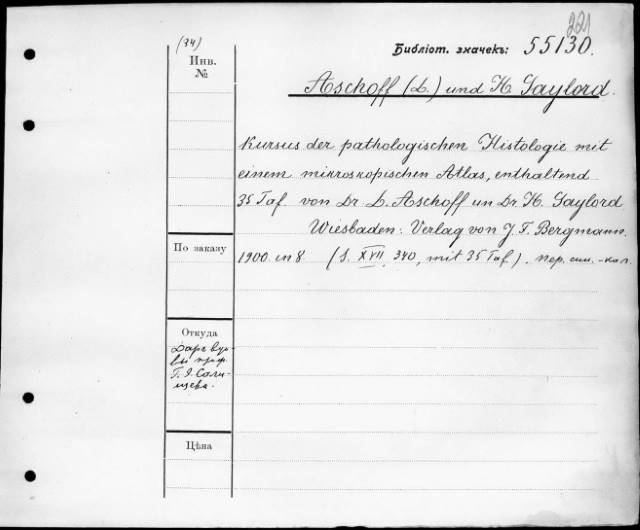 221
(34)
Библіот. значекъ: 55130.
Инв.
№
Aschoff (L.) und H. Gaylord.
Kursus der pathologischen Histologie mit
einem mikroskopischen Atlas, enthaltend
35 Taf. von Dr. L. Aschoff un Dr. H. Gaylord
Wiesbaden: Verlag von J. F. Bergmann.
По заказу
1900. in 8. (S. XVII, 340, mit 35 Taf.). пер. син.-кал.
Откуда
Даръ
Г.
Цѣна